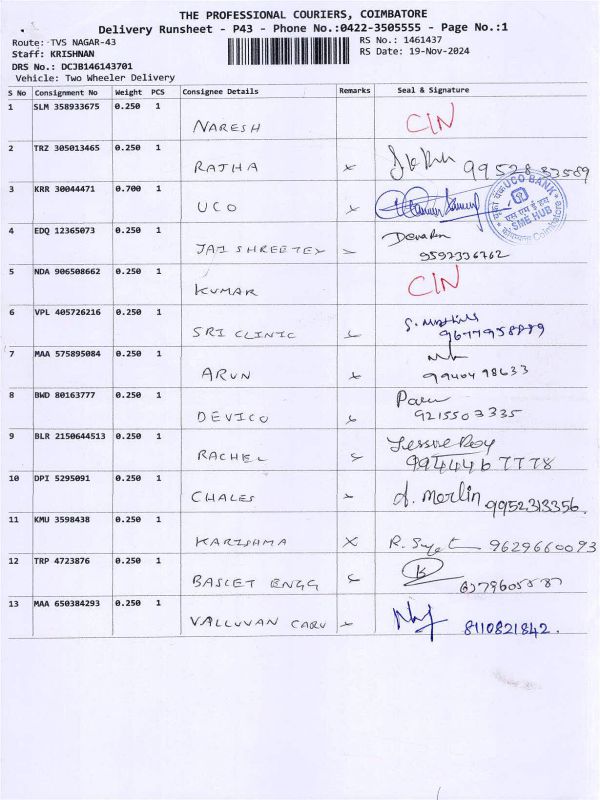 THE PROFESSIONAL COURIERS, COIMBATORE
Delivery Runsheet - P43 - Phone No.:0422-3505555 - Page No.:1
Route: TVS NAGAR-43
RS No.: 1461437
Staff: KRISHNAN
RS Date: 19-Nov-2024
DRS No.: DCJB146143701
Vehicle: Two Wheeler Delivery
S No Consignment No Weight PCS Consignee Details Remarks Seal & Signature
1 SLM 358933675 0.250 1 NARESH CIN
2 TRZ 305013465 0.250 1 RAJHA 99528 33589
3 KRR 30044471 0.700 1 UCO UCO BANK SME HUB Coimbatore
4 EDQ 12365073 0.250 1 JAI SHREETEX
5 NDA 906508662 0.250 1 KUMAR CIN
6 VPL 405726216 0.250 1 SRI CLINIC
7 MAA 575895084 0.250 1 ARUN 99404 98633
8 BWD 80163777 0.250 1 DEVICO 9215503335
9 BLR 2150644513 0.250 1 RACHEL Jessie Roy 994446 7778
10 DPI 5295091 0.250 1 CHALES d. Merlin 9952313356.
11 KMU 3598438 0.250 1 KARISHMA X 9629660093
12 TRP 4723876 0.250 1 BASLET ENGG
13 MAA 650384293 0.250 1 VALLUVAN CARU 8110821842.